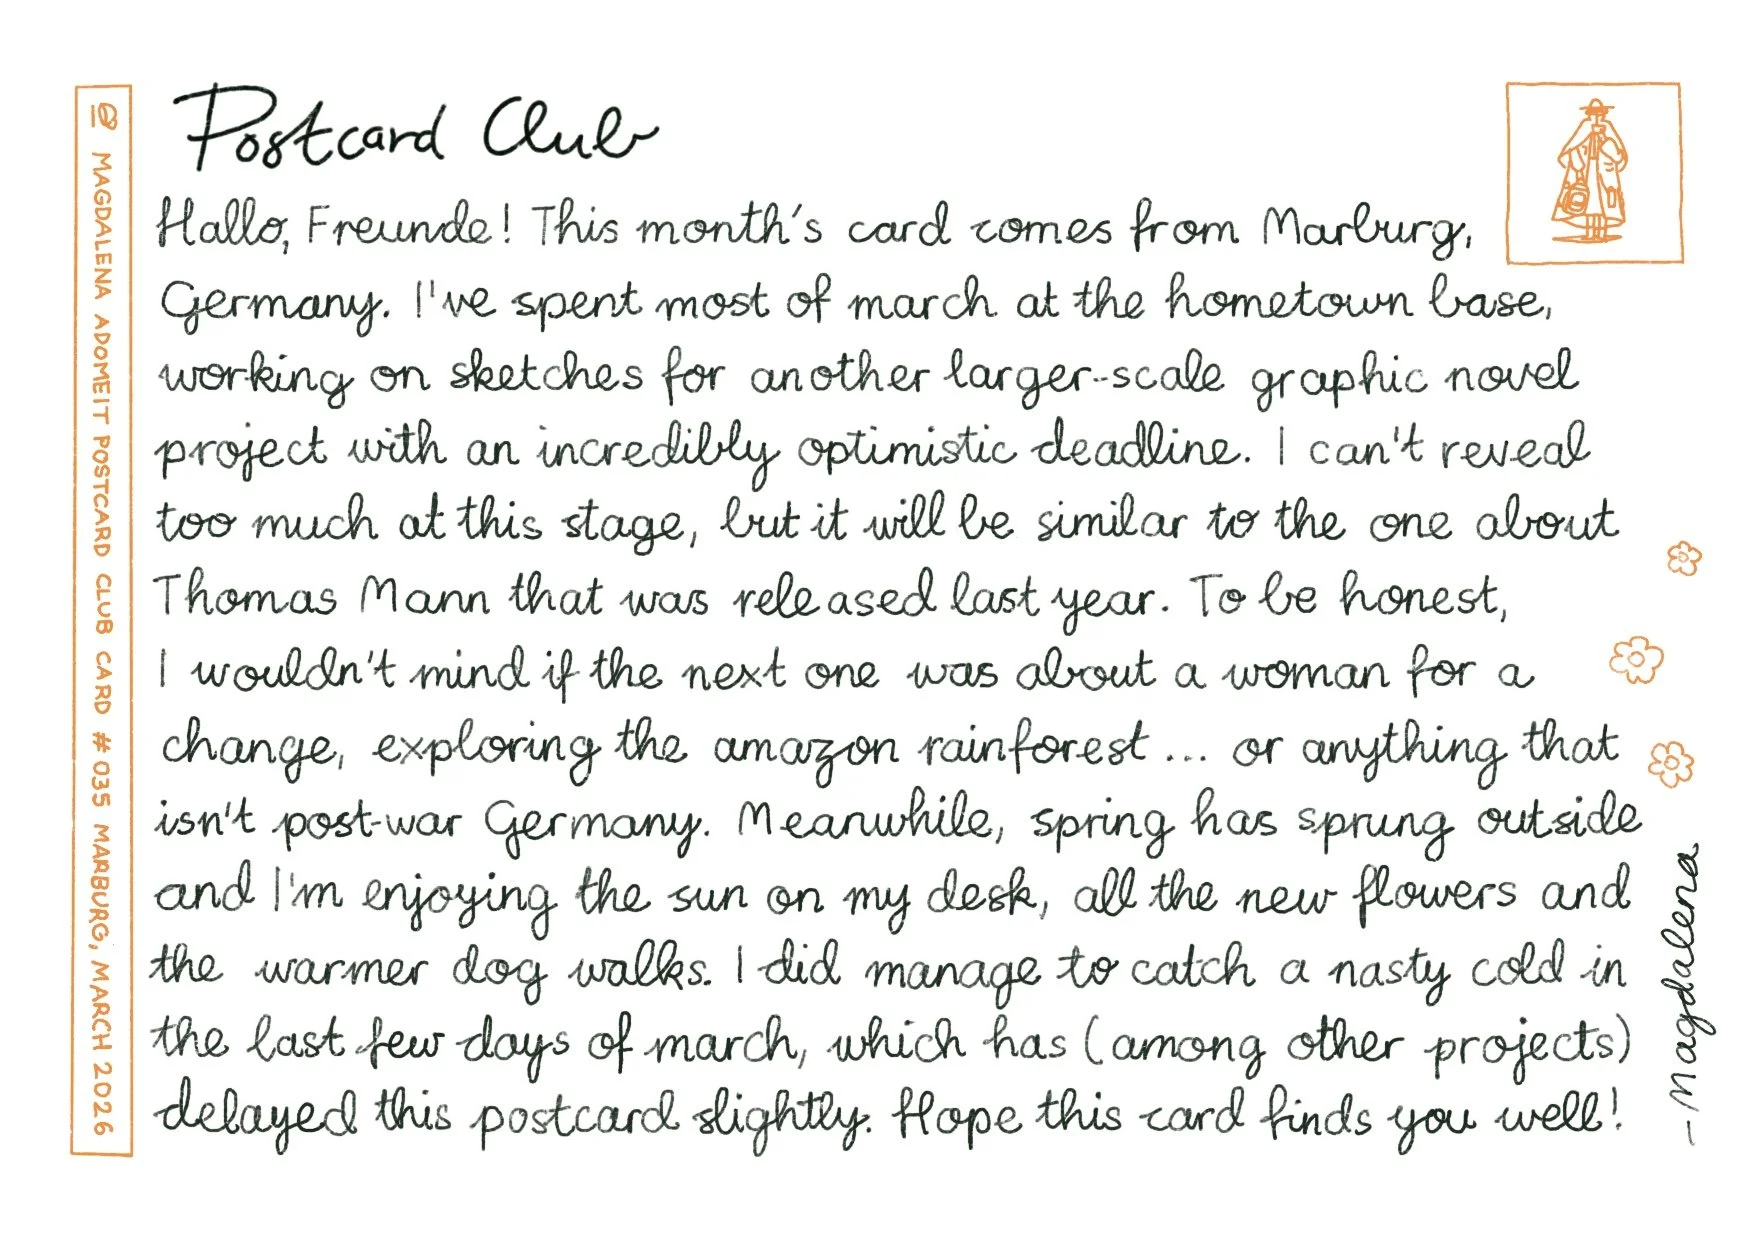 Postcard Club
Hallo, Freunde! This month's card comes from Marburg,
Germany. I've spent most of march at the hometown base,
working on sketches for another larger-scale graphic novel
project with an incredibly optimistic deadline. I can't reveal
too much at this stage, but it will be similar to the one about
Thomas Mann that was released last year. To be honest,
I wouldn't mind if the next one was about a woman for a
change, exploring the amazon rainforest... or anything that
isn't post-war Germany. Meanwhile, spring has sprung outside
and I'm enjoying the sun on my desk, all the new flowers and
the warmer dog walks. I did manage to catch a nasty cold in
the last few days of march, which has (among other projects)
delayed this postcard slightly. Hope this card finds you well!
– Magdalena
MAGDALENA ADOMEIT POSTCARD CLUB CARD # 035 MARBURG, MARCH 2026